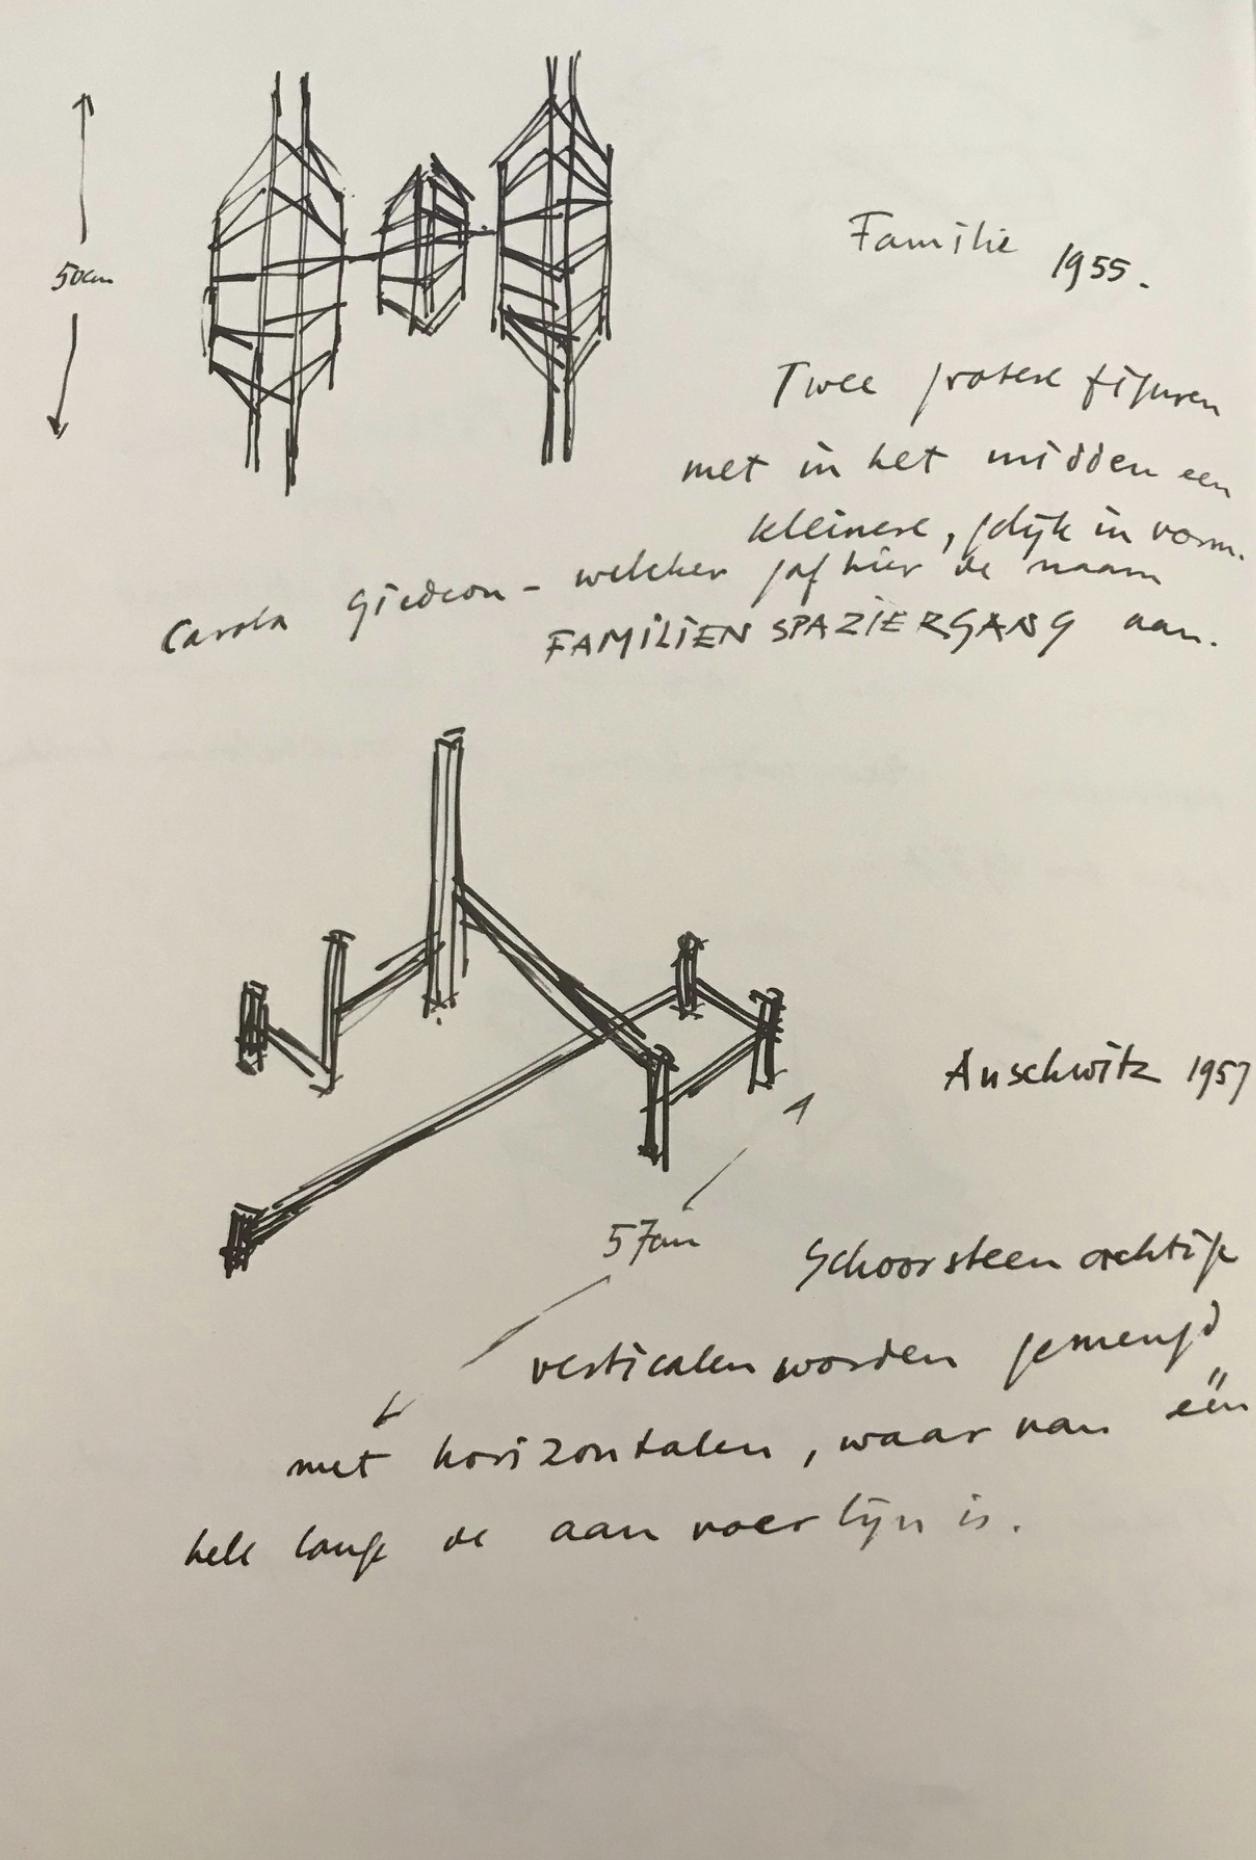 50cm
Familie 1955.
Twee grotere figuren
met in het midden een
kleinere, gelijk in vorm.
Carola Giedeon - welcker gaf hier de naam
FAMILIEN SPAZIERGANG aan.
Auschwitz 1957
57cm
Schoorsteen achtige
verticalen worden gemengd
met horizontalen, waar van één
hele lange de aan voer lijn is.